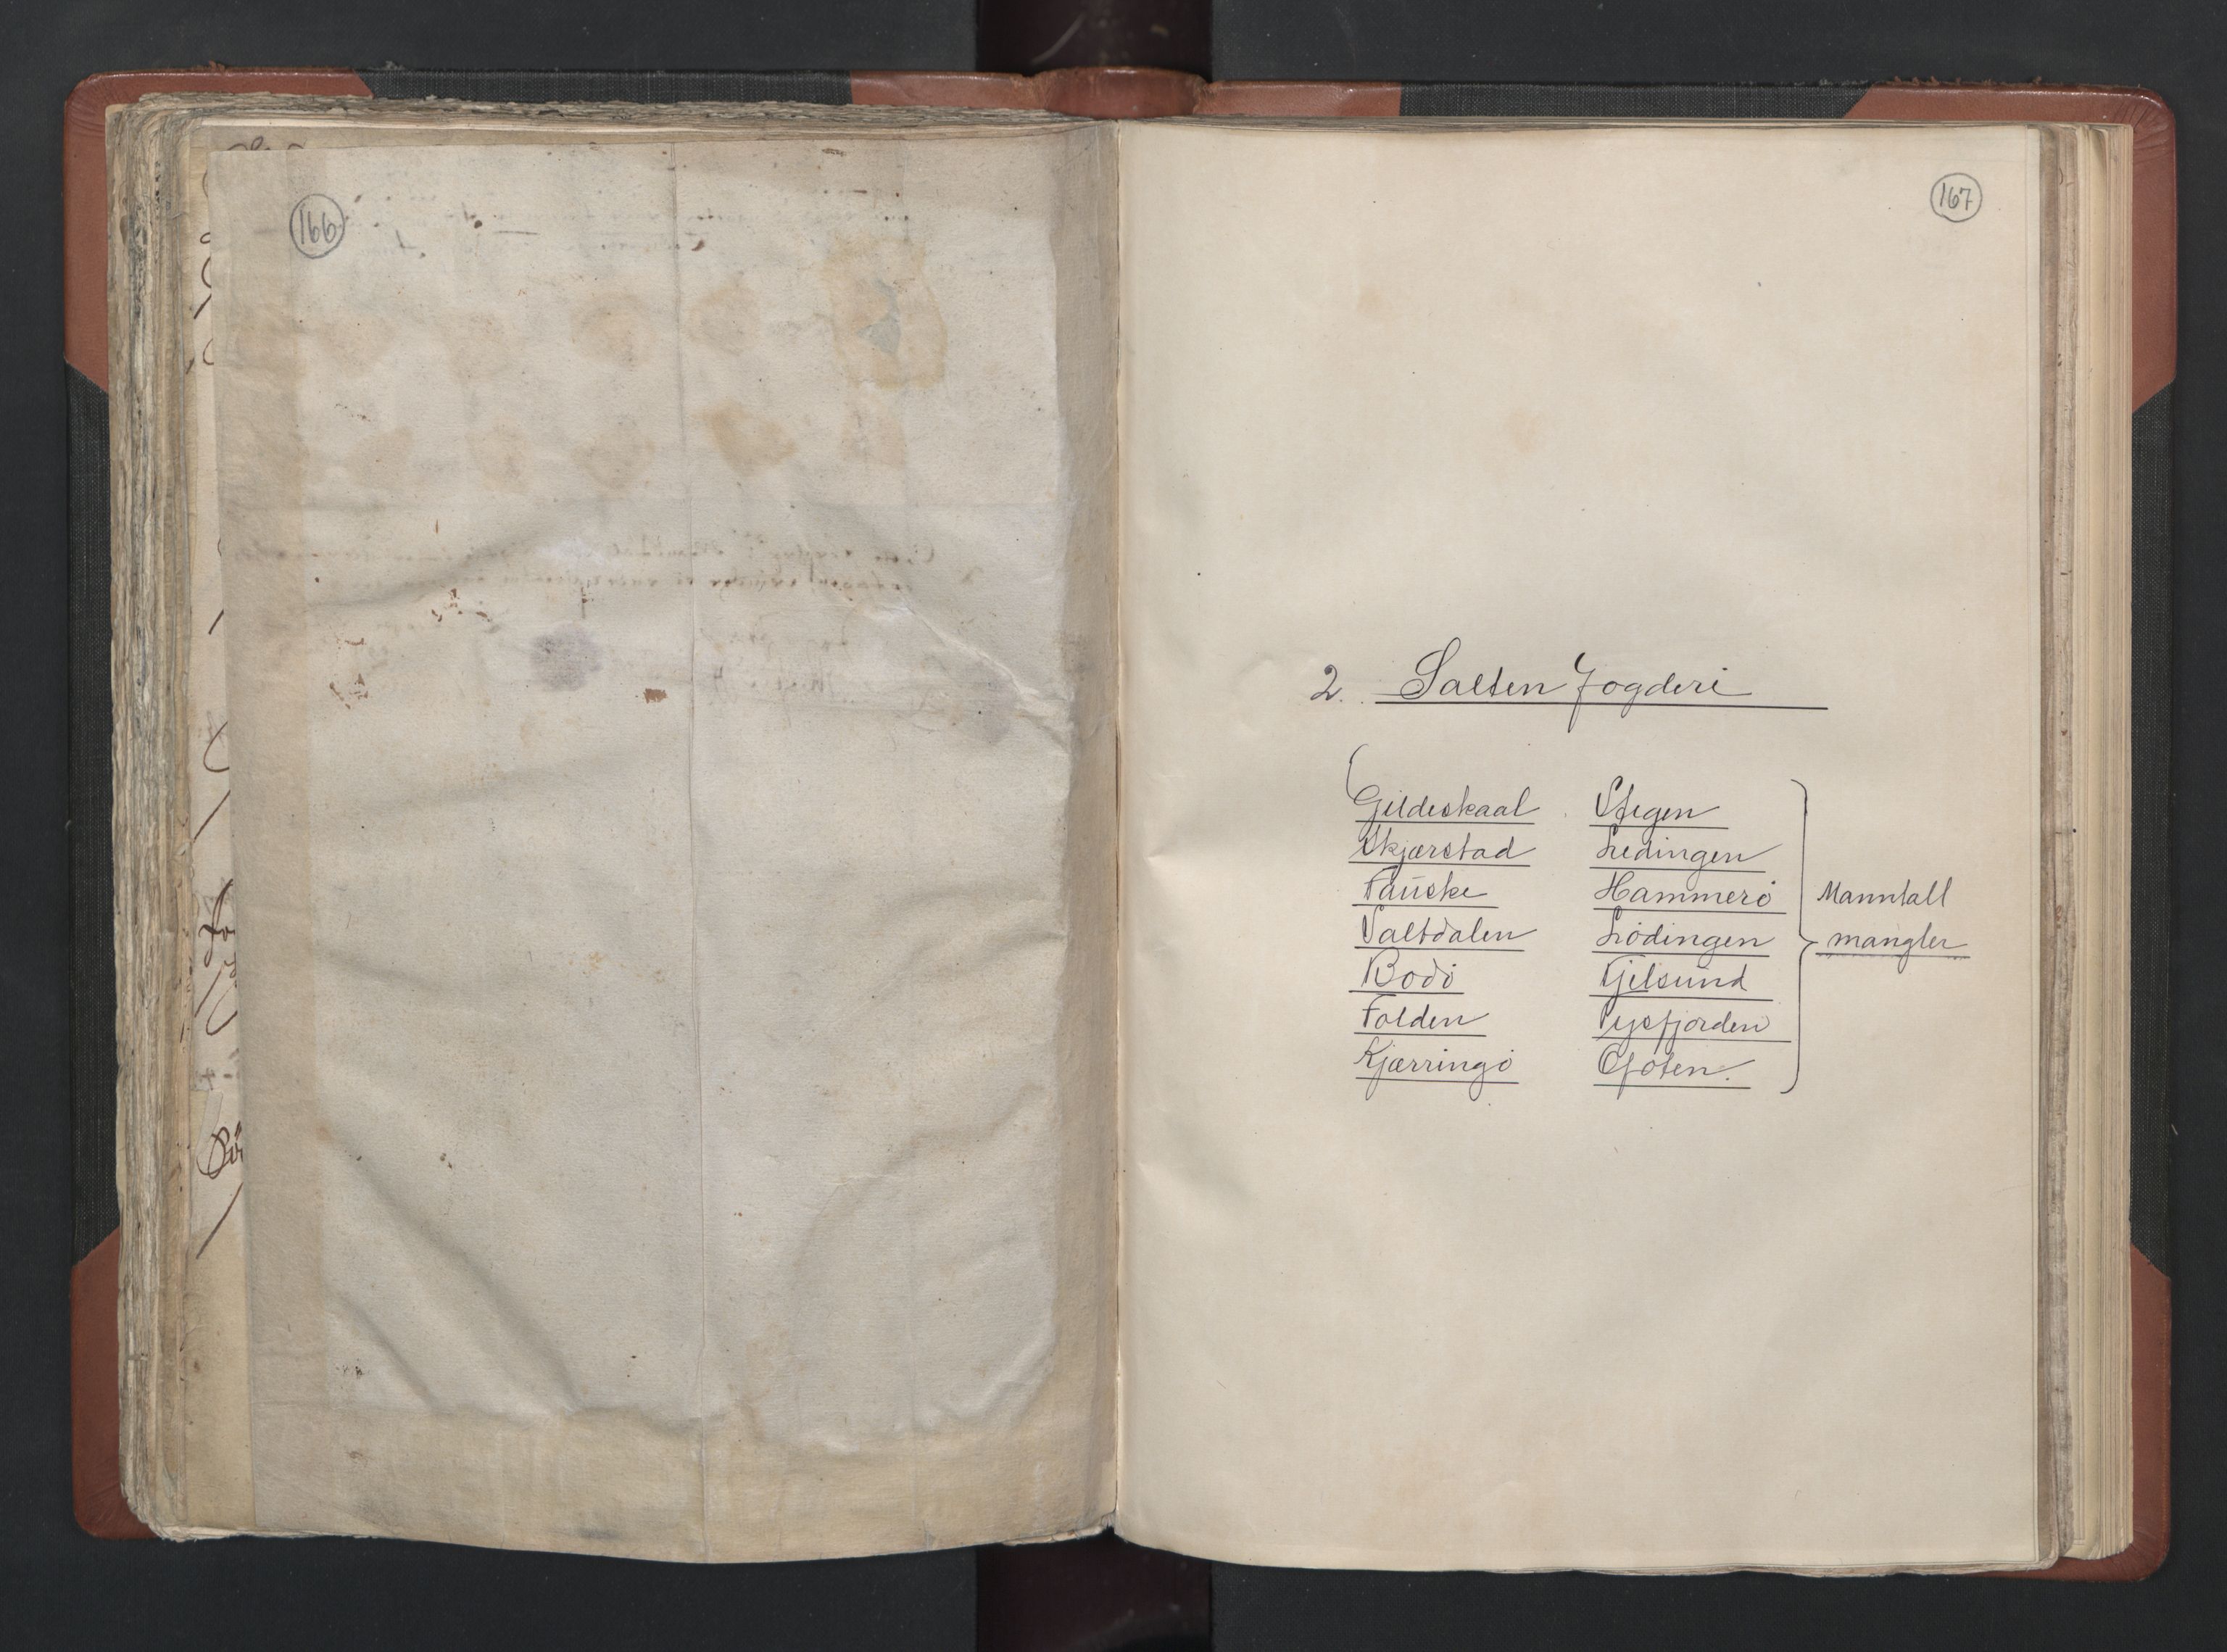 166
167
2. Salten Fogderi
Gildeskaal
Skjærstad
Fauske
Saltdalen
Bodö
Folden
Kjærringö
Stegen
Ledingen
Hammerö
Lödingen
Tjelsund
Tysfjorden
Ofoten.
Manntall
mangler